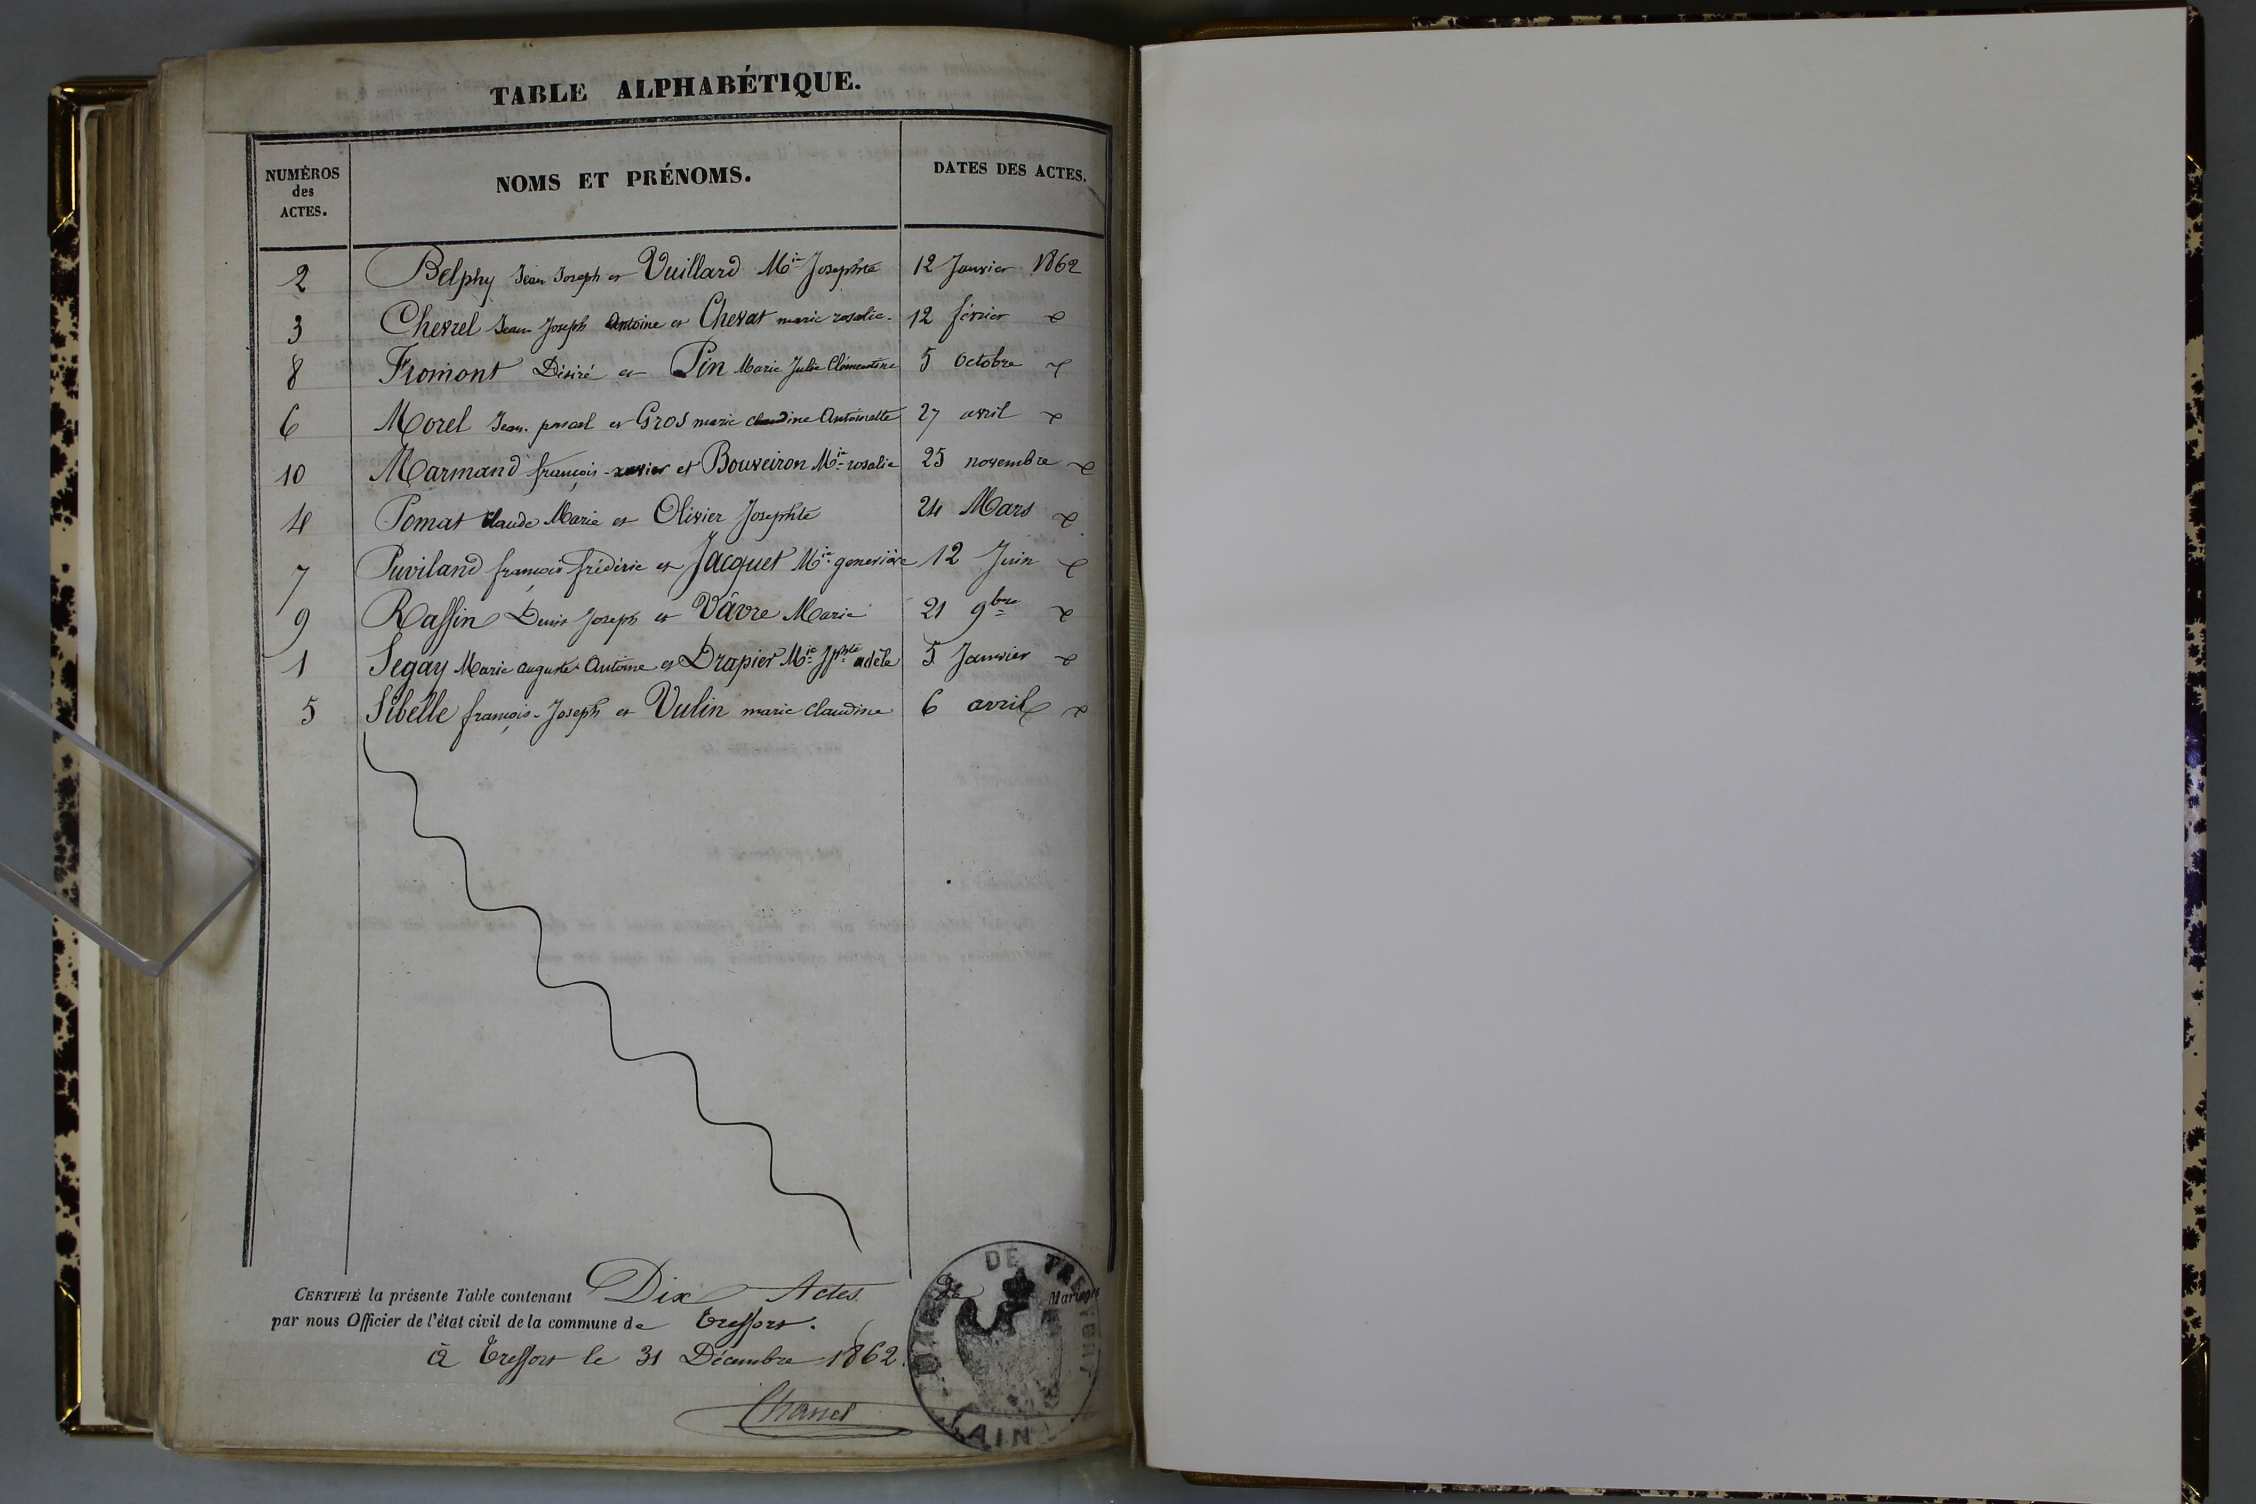 TABLE ALPHABÉTIQUE.
NUMÉROS
des
ACTES.
NOMS ET PRÉNOMS.
DATES DES ACTES.
2 Belphy Jean Joseph et Vuillard Mie Josephte 12 Janvier 1862
3 Chevrel Jean Joseph Antoine et Chevat marie rosalie. 12 février
8 Fromont Désiré et Pin Marie Julie Clémentine 5 Octobre
6 Morel Jean pascal et Gros marie claudine Antoinette 27 avril
10 Marmand françois-xavier et Bouveiron Mie rosalie 25 novembre
4 Pomat Claude Marie et Olivier Josephte 24 Mars
7 Puviland françois frédéric et Jacquet Mie geneviève 12 Juin
9 Raffin Denis Joseph et Vâvre Marie 21 9bre
1 Segay Marie auguste Antoine et Drapier Mie Jphte adèle 5 Janvier
5 Sibelle françois-Joseph et Vulin marie claudine 6 avril
CERTIFIÉ la présente Table contenant Dix Actes de Mariages
par nous Officier de l'état civil de la commune de Treffort.
à Treffort le 31 Décembre 1862.
DE TREFFORT
AIN